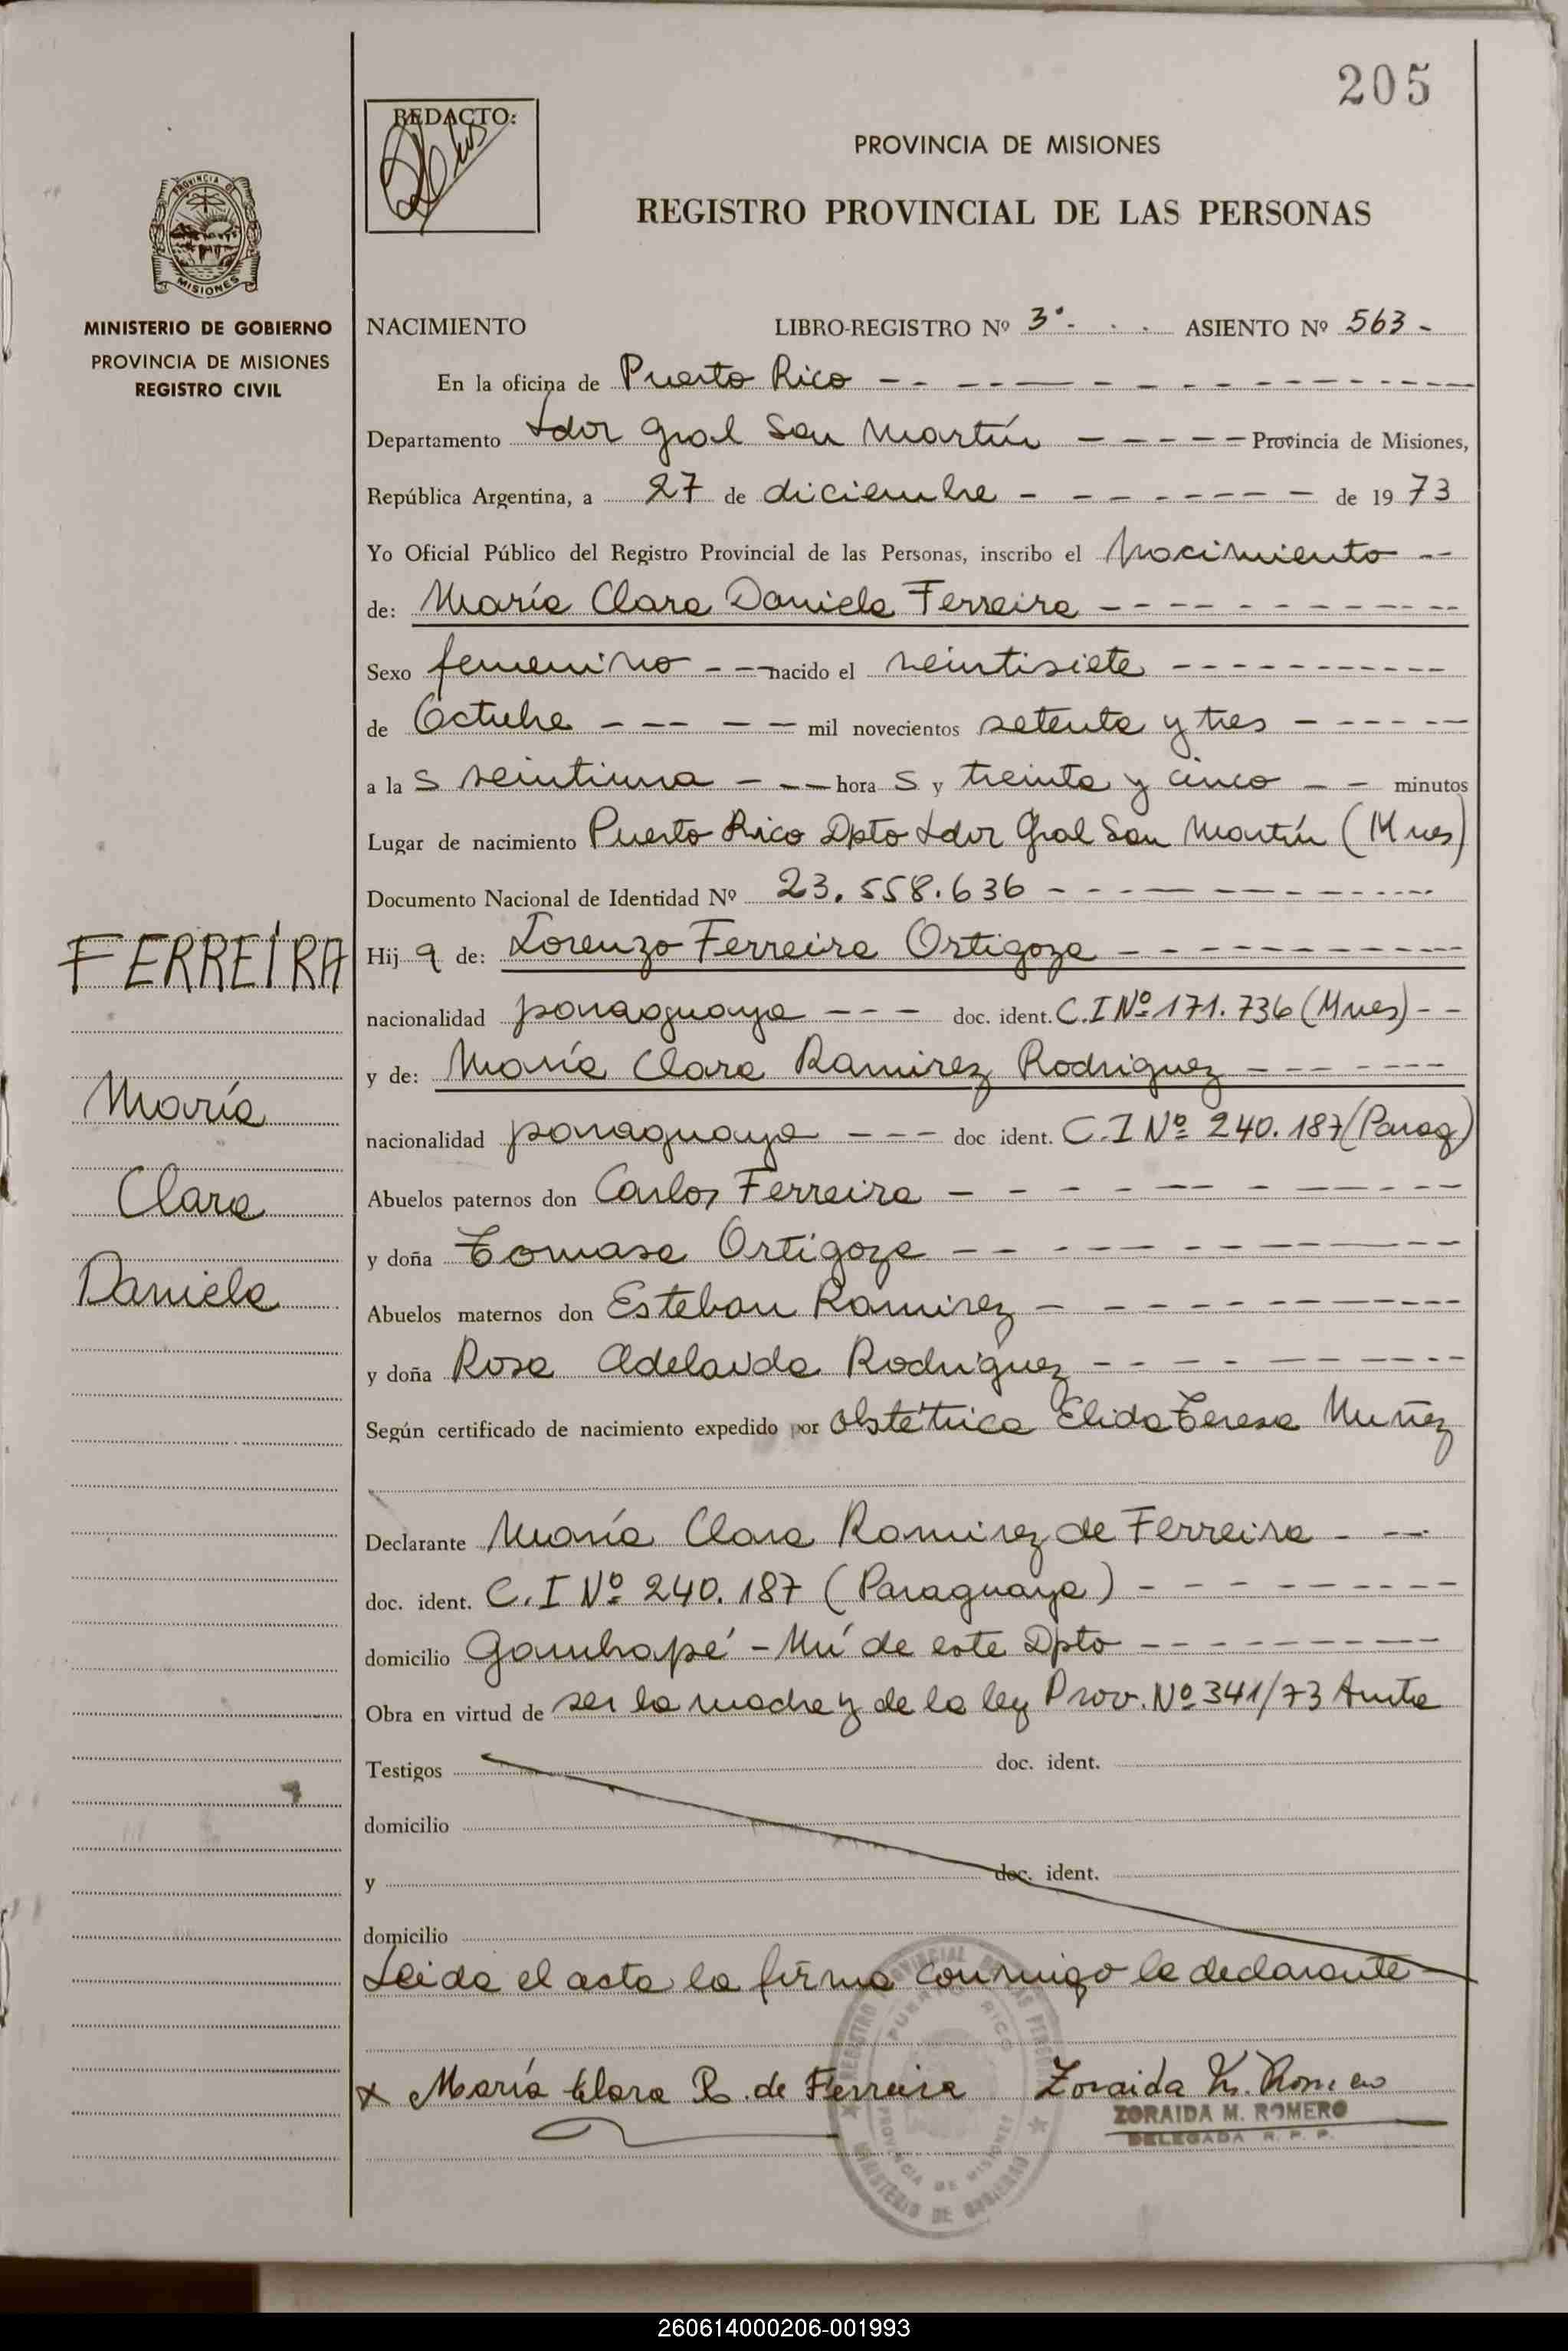 205
REDACTO:
PROVINCIA DE MISIONES
REGISTRO PROVINCIAL DE LAS PERSONAS
PROVINCIA DE
MISIONES
MINISTERIO DE GOBIERNO
PROVINCIA DE MISIONES
REGISTRO CIVIL
NACIMIENTO LIBRO-REGISTRO Nº 3º - ASIENTO Nº 563 -
En la oficina de Puerto Rico
Departamento Ldor Gral San Martín Provincia de Misiones,
República Argentina, a 27 de diciembre de 1973
Yo Oficial Público del Registro Provincial de las Personas, inscribo el Nacimiento
de: María Clara Daniela Ferreira
Sexo femenino nacido el veintisiete
de Octubre mil novecientos setenta y tres
a la s veintiuna hora s y treinta y cinco minutos
Lugar de nacimiento Puerto Rico Dpto Ldor Gral San Martín (Mnes)
Documento Nacional de Identidad Nº 23.558.636
Hij a de: Lorenzo Ferreira Ortigoza
nacionalidad paraguaya doc. ident. C.I Nº 171.736 (Mnes)
y de: María Clara Ramirez Rodriguez
nacionalidad paraguaya doc ident. C.I Nº 240.187 (Parag)
Abuelos paternos don Carlos Ferreira
y doña Tomasa Ortigoza
Abuelos maternos don Esteban Ramirez
y doña Rosa Adelaida Rodriguez
Según certificado de nacimiento expedido por Obstétrica Elida Teresa Nuñez
Declarante María Clara Ramirez de Ferreira
doc. ident. C.I Nº 240.187 (Paraguaya)
domicilio Garuhapé - Mí de este Dpto
Obra en virtud de ser la madre y de la ley Prov. Nº 341/73 Amtia
Testigos doc. ident.
domicilio
y doc. ident.
domicilio
Leida el acta la firma conmigo la declarante
x María Clara R. de Ferreira Zoraida M. Romero
ZORAIDA M. ROMERO
DELEGADA R. P. P.
REGISTRO PROVINCIAL DE LAS PERSONAS
PUERTO RICO
PROVINCIA DE MISIONES
MINISTERIO DE GOBIERNO
FERREIRA
María
Clara
Daniela
260614000206-001993